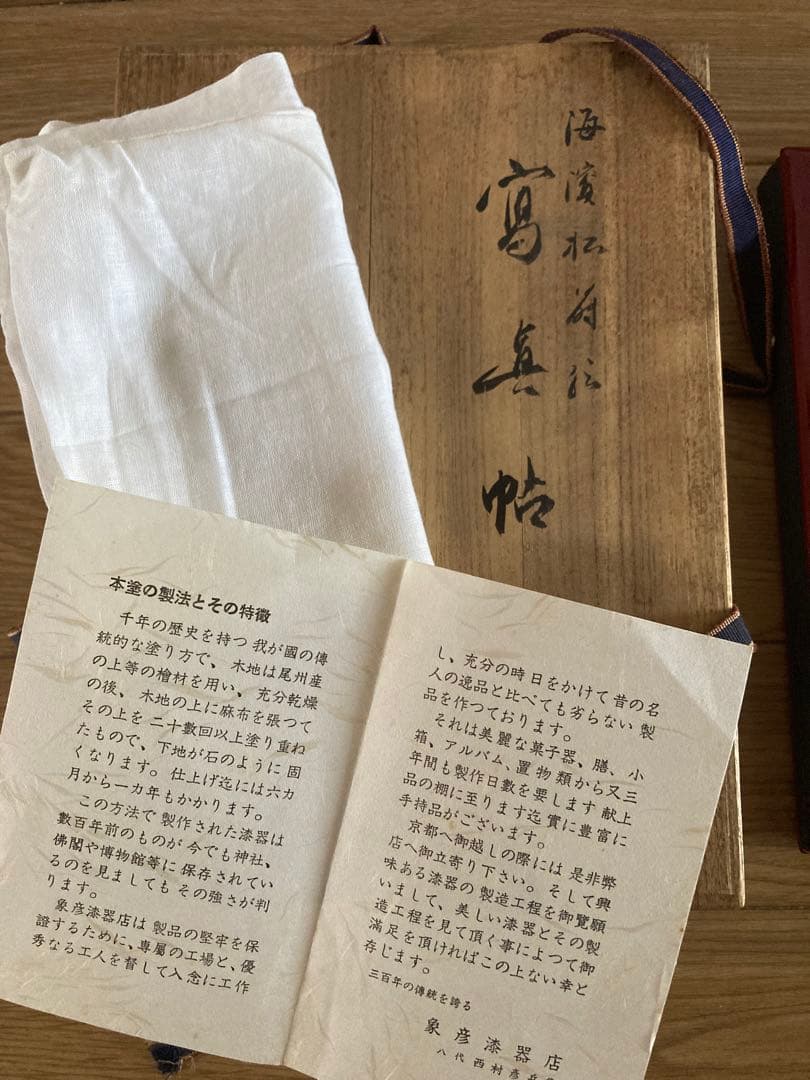 海濱松蒔絵
寫真帖
本塗の製法とその特徴
千年の歴史を持つ 我が國の傳
統的な塗り方で、 木地は尾州産
の上等の檜材を用い、 充分乾燥
の後、 木地の上に麻布を張つて
その上を 二十數回以上塗り重ね
たもので、下地が石のように 固
くなります。 仕上げ迄には六カ
月から一カ年もかかります。
この方法で 製作された漆器は
數百年前のものが 今でも神社、
佛閣や博物館等に 保存されてい
るのを見ましても その強さが判
ります。
象彦漆器店は 製品の堅牢を保
證するために、専屬の工場と、優
秀なる工人を督して入念に工作
し、充分の時日をかけて 昔の名
人の逸品と比べても劣らない 製
品を作つております。
それは美麗な菓子器、膳、小
箱、アルバム、置物類から又三
年間も製作日數を要します 献上
品の棚に至ります迄 實に豊富に
手持品がございます。
京都へ御越しの際には 是非弊
店へ御立寄り下さい。そして興
味ある漆器の 製造工程を御覽願
いまして、美しい漆器とその製
造工程を見て頂く事によつて御
滿足を頂ければこの上ない幸と
存じます。
三百年の傳統を誇る
象彦漆器店
八代西村彦兵